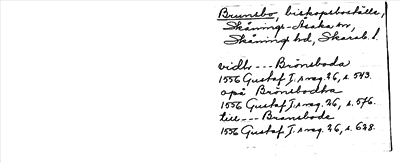 Brunsbo, biskopsboställe,
Skånings-Åsaka sn,
Skånings hd, Skarab. l.
vidhr --- Brönsboda
1556 Gustaf I:s reg. 26, s. 543.
opå Brönsbodha
1556 Gustaf I:s reg. 26, s. 576.
till --- Bransbode
1556 Gustaf I:s reg. 26, s. 628.